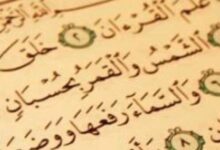 عَلَّمَ ٱلْقُرْءَانَ ٢ خَلَقَ
ٱلشَّمْسُ وَٱلْقَمَرُ بِحُسْبَانٍ
وَٱلسَّمَآءَ رَفَعَهَا وَوَضَعَ
٨